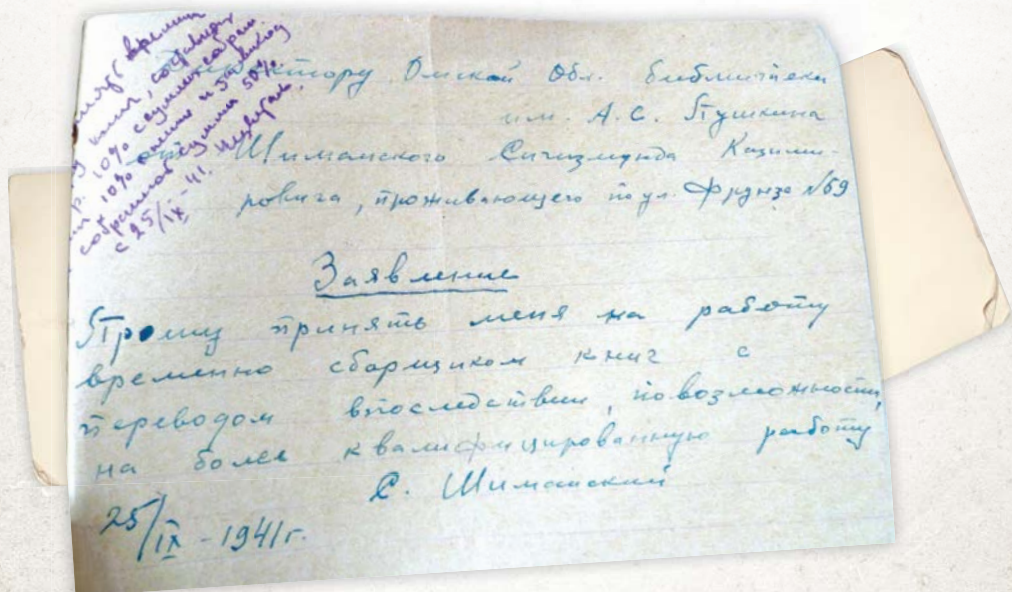 времен
книг, составляющ
р. 10% с суммы собран
10% книг и
собранной суммы 50%.
с 25/IX-41.
Директору Омской Обл. библиотеки
им. А.С. Пушкина
от Шиманского Сигизмунда Казими-
ровича, проживающего по ул. Фрунзе №69
Заявление
Прошу принять меня на работу
временно сборщиком книг с
переводом впоследствии, по возможности,
на более квалифицированную работу
С. Шиманский
25/IX-1941г.